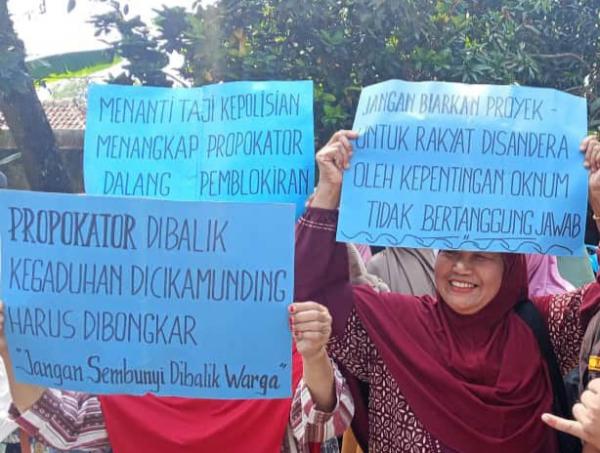 MENANTI TAJI KEPOLISIAN
MENANGKAP PROPOKATOR
DALANG PEMBLOKIRAN
JANGAN BIARKAN PROYEK -
UNTUK RAKYAT DISANDERA
OLEH KEPENTINGAN OKNUM
TIDAK BERTANGGUNG JAWAB
PROPOKATOR DIBALIK
KEGADUHAN DICIKAMUNDING
HARUS DIBONGKAR
"Jangan Sembunyi Dibalik Warga"